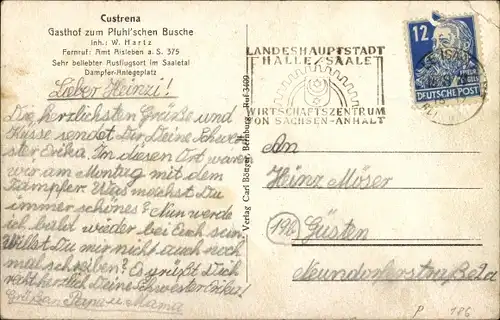 Custrena
Gasthof zum Pfuhl'schen Busche
Inh.: W. Hartz
Fernruf: Amt Alsleben a. S. 375
Sehr beliebter Ausflugsort im Saaletal
Dampfer-Anlegeplatz
Lieber Heinzi!
Die herzlichsten Grüße und
Küsse sendet Dir Deine Schwe-
ster Erika. In diesen Ort waren
wir am Montag mit dem
Dampfer. Was machst Du
immer schönes? Nun werde
ich bald wieder bei Euch sein.
Willst Du mir nicht auch noch
mal schreiben? Es grüßt Dich
recht herzlich Deine Schwester Erika!
Grüß an Papa u. Mama
Verlag Carl Bönger, Bernburg, Ruf 3409
LANDESHAUPTSTADT
HALLE SAALE
WIRTSCHAFTSZENTRUM
VON SACHSEN-ANHALT
12
DEUTSCHE POST
An
Heinz Möser
(19b) Güsten
Neundorferstraße 2a
P 186